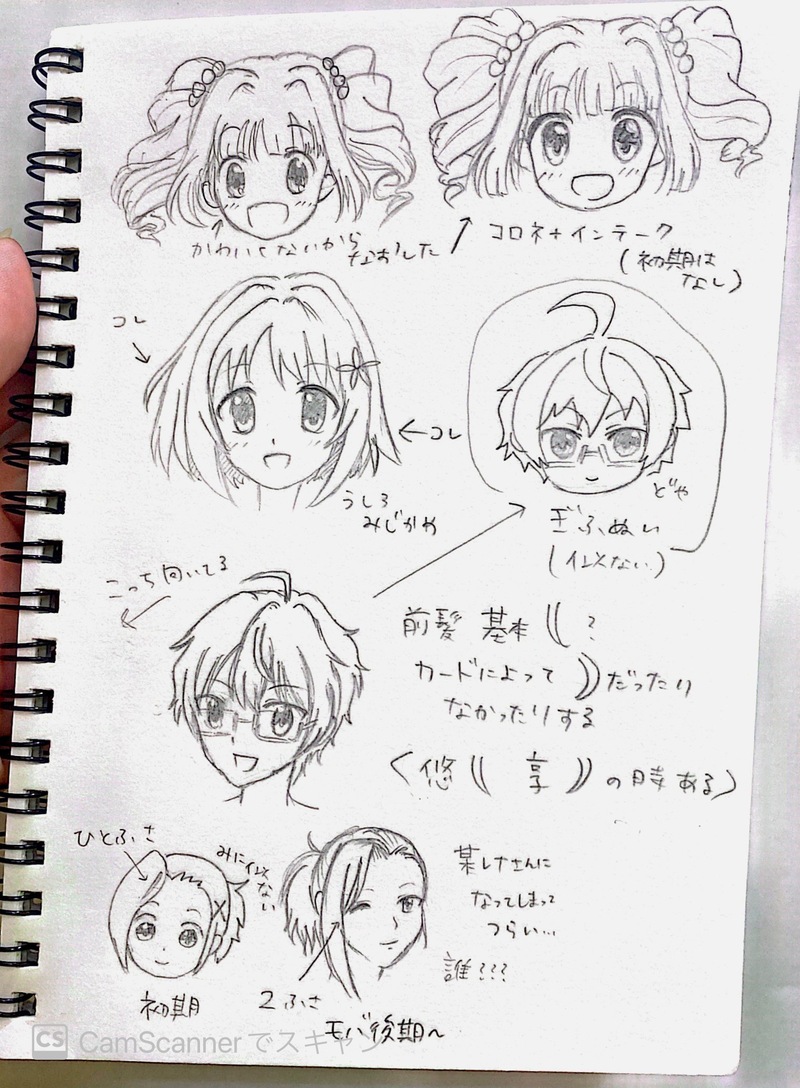 かわいくないから
なおした
コロネ+インテーク
(初期は
なし)
コレ
←コレ
うしろ
みじかめ
どや
ぎふぬい
(似てない)
こっち向いてる
前髪 基本 ((?
カードによって ))だったり
なかったりする
(悠(( 享))の時ある)
ひとふさ
みに似てない
初期
2ふさ
モバ後期~
某レナさんに
なってしまって
つらい…
誰???
CS CamScanner でスキャン